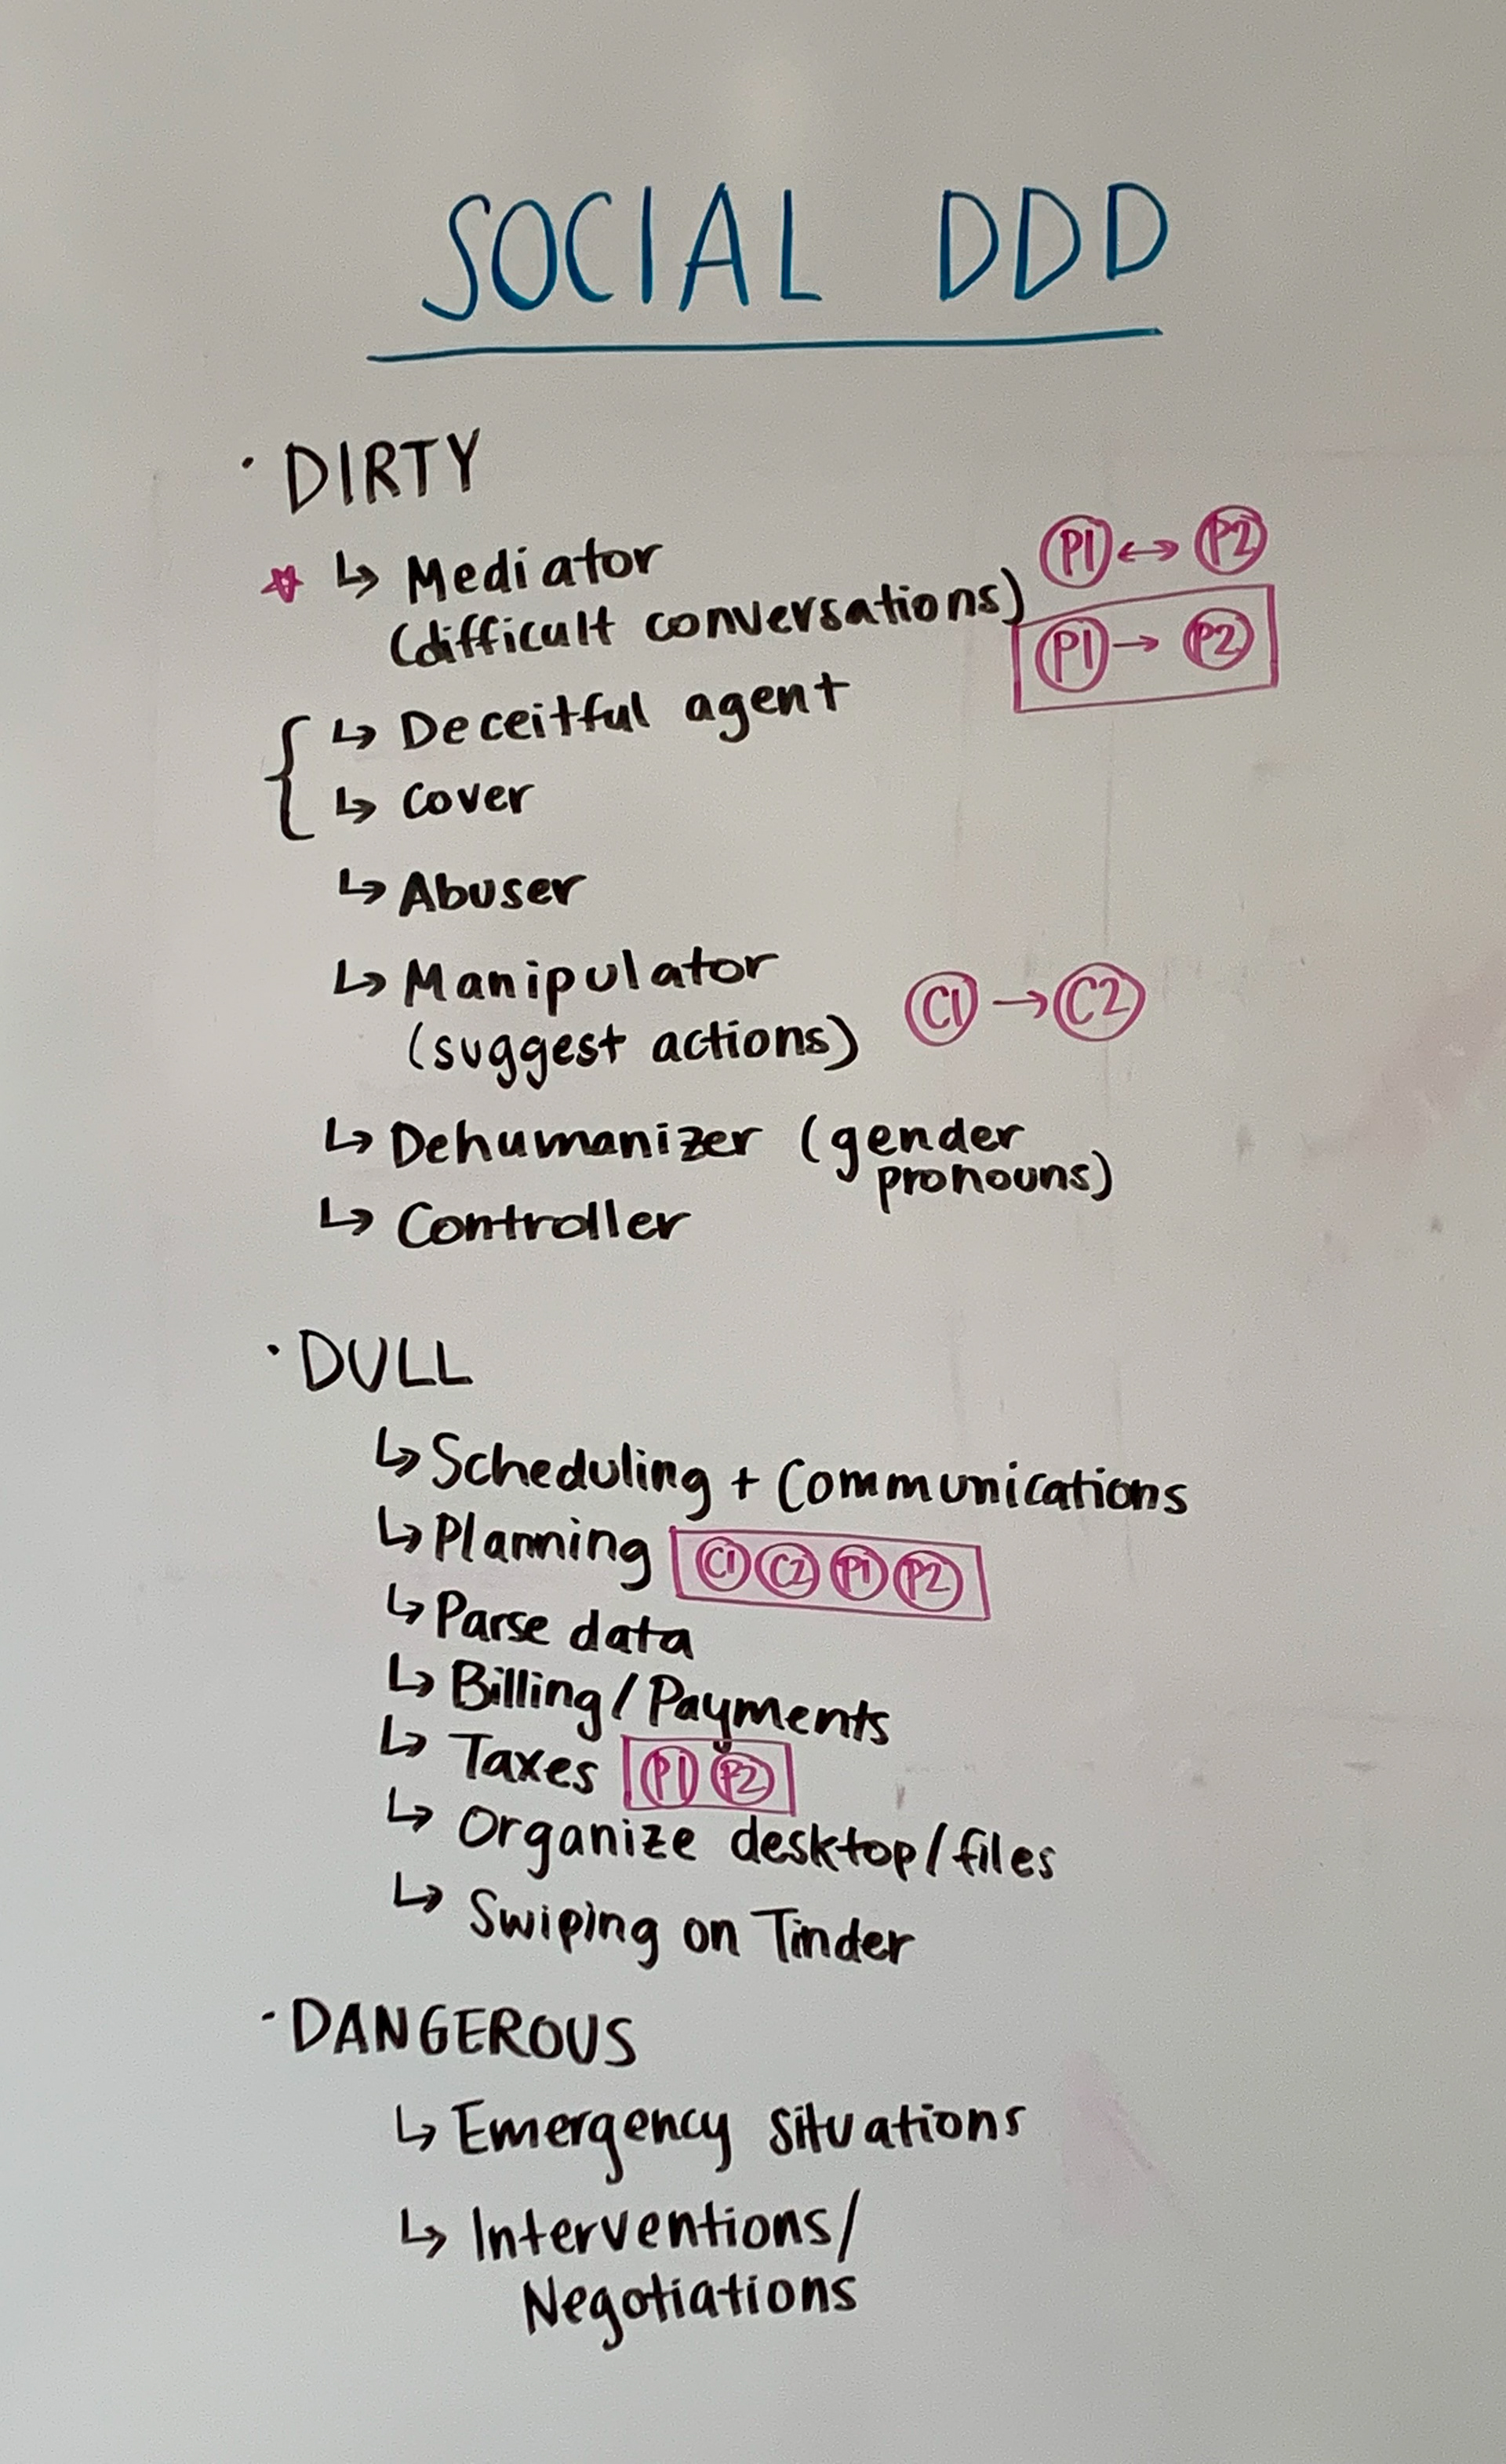 SOCIAL DDD
· DIRTY
☆ ↳ Mediator P1 ↔ P2
(difficult conversations) P1 → P2
{ ↳ Deceitful agent
↳ Cover
↳ Abuser
↳ Manipulator
(suggest actions) C1 → C2
↳ Dehumanizer (gender
pronouns)
↳ Controller
· DULL
↳ Scheduling + Communications
↳ Planning C1 C2 P1 P2
↳ Parse data
↳ Billing/Payments
↳ Taxes P1 P2
↳ Organize desktop/files
↳ Swiping on Tinder
· DANGEROUS
↳ Emergency situations
↳ Interventions/
Negotiations